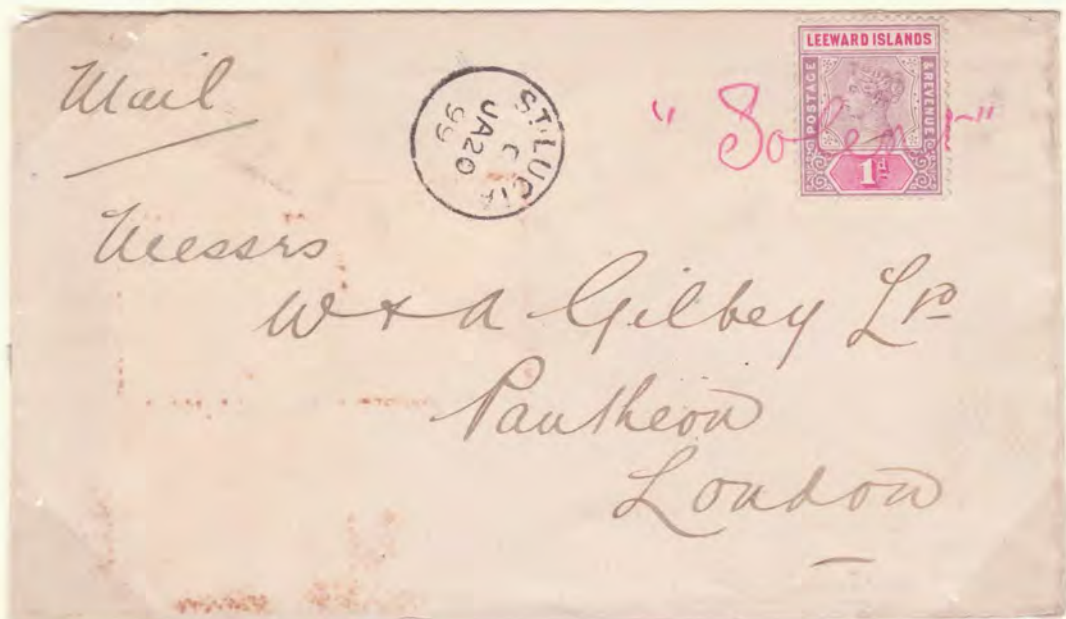 Mail
ST. LUCIA
C
JA 20
99
LEEWARD ISLANDS
POSTAGE
& REVENUE
1d
"Solent"
Messrs
W & A Gilbey Ld
Pantheon
London